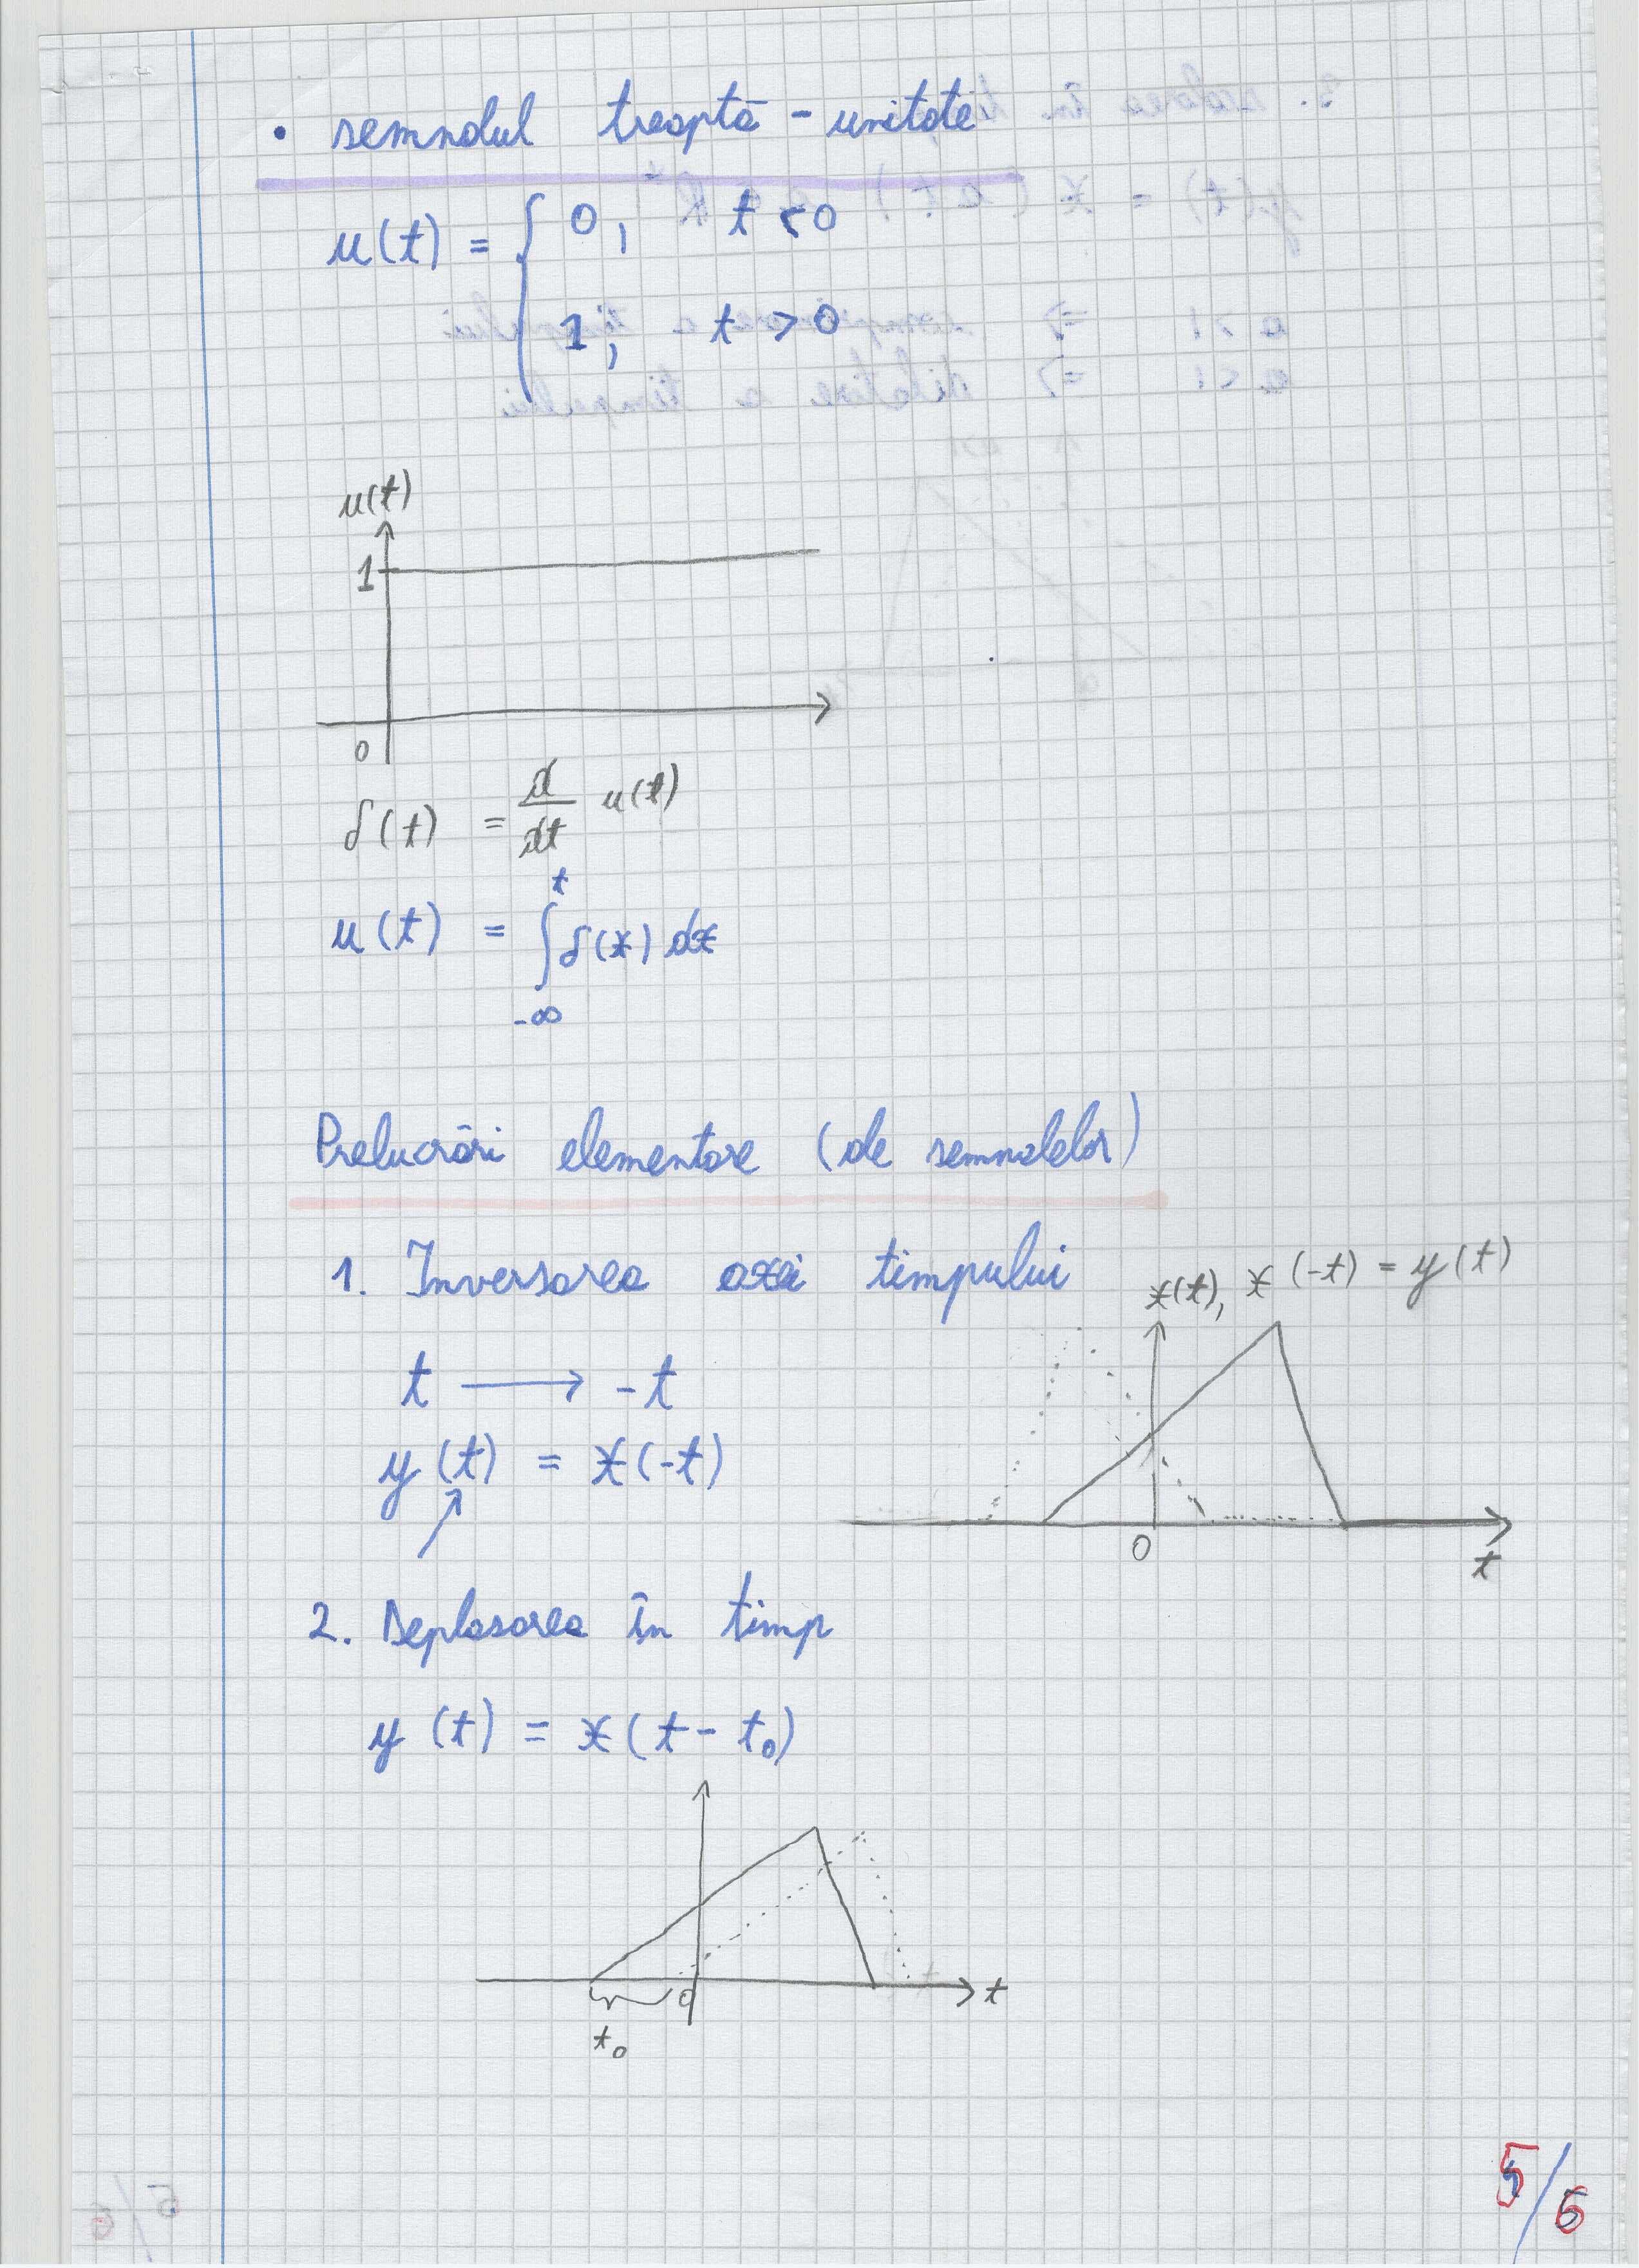 • semnalul treaptă - unitate
u(t) = { 0, t < 0
1, t > 0
u(t)
1
0
δ(t) = d/dt u(t)
u(t) = ∫ -∞ t δ(x) dx
Prelucrări elementare (de semnalelor)
1. Inversarea axei timpului
x(t), x(-t) = y(t)
t ⟶ -t
y(t) = x(-t)
0
t
2. Deplasarea în timp
y(t) = x(t - t₀)
0
t
t₀
5/6